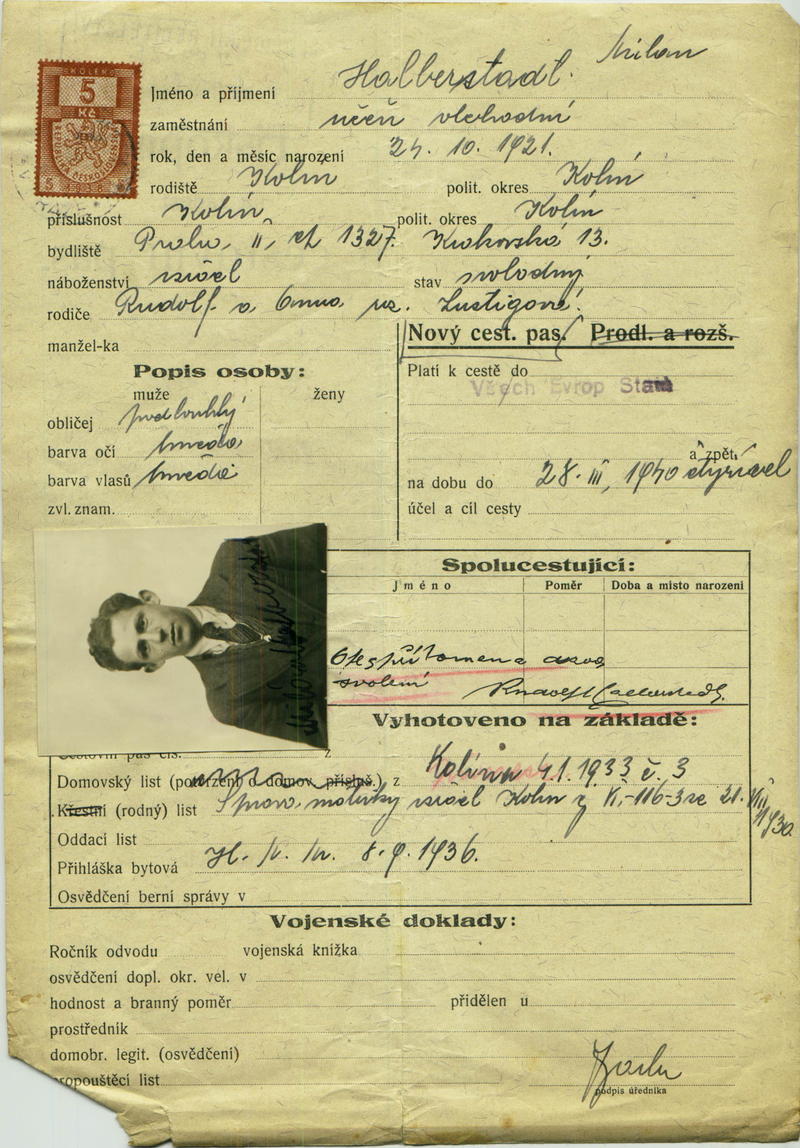 5
Kč
Milan
Jméno a příjmení Halberstadt.
zaměstnání učeň obchodní
rok, den a měsíc narození 24. 10. 1921.
rodiště Kolín polit. okres Kolín
příslušnost Kolín polit. okres Kolín
bydliště Praha, II, čp 1327. Krakovská 13.
náboženství israel stav svobodný
rodiče Rudolf a Anna roz. Lustigová.
manžel-ka
Nový cest. pas. Prodl. a rozš.
Popis osoby:
muže ženy
Platí k cestě do
Všech Evrop Států
obličej podlouhlý
barva očí hnědá
barva vlasů hnědé
zvl. znam.
a zpět.
na dobu do 28. III. 1940
účel a cíl cesty
Spolucestující:
Jméno Poměr Doba a místo narození
svolení Rudolf Halberstadt.
Vyhotoveno na základě:
Cestovní pas čís. z
Domovský list (potvrzení o domov. přísluš.) z Kolína 4.1.1933 č. 3
Křestní (rodný) list Správa matriky israel Kolín z VI-116-3 ze 21. VII 1930
Oddací list
Přihláška bytová 8.9.1936.
Osvědčení berní správy v
Vojenské doklady:
Ročník odvodu vojenská knížka
osvědčení dopl. okr. vel. v
hodnost a branný poměr přidělen u
prostředník
domobr. legit. (osvědčení)
propouštěcí list
podpis úředníka